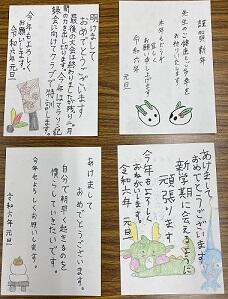 謹賀新年
先生のご健康とご多幸を
お祈りいたします
本年もどうぞ
お願い申し上げます
令和六年 元旦
明けまして
おめでとうございます。
最後の大会は終わりましたが残り二ヶ月
今年もよろしくお願いします。
令和六年 元旦
あけまして
おめでとうございます
新学期に会えるように
頑張ります
今年もよろしく
おねがいします。
令和六年 元旦
あけまして
おめでとうございます。
自分で朝早く起きるのを
慣らしていきたいです。
今年もよろしくお願いします。
令和六年 元旦